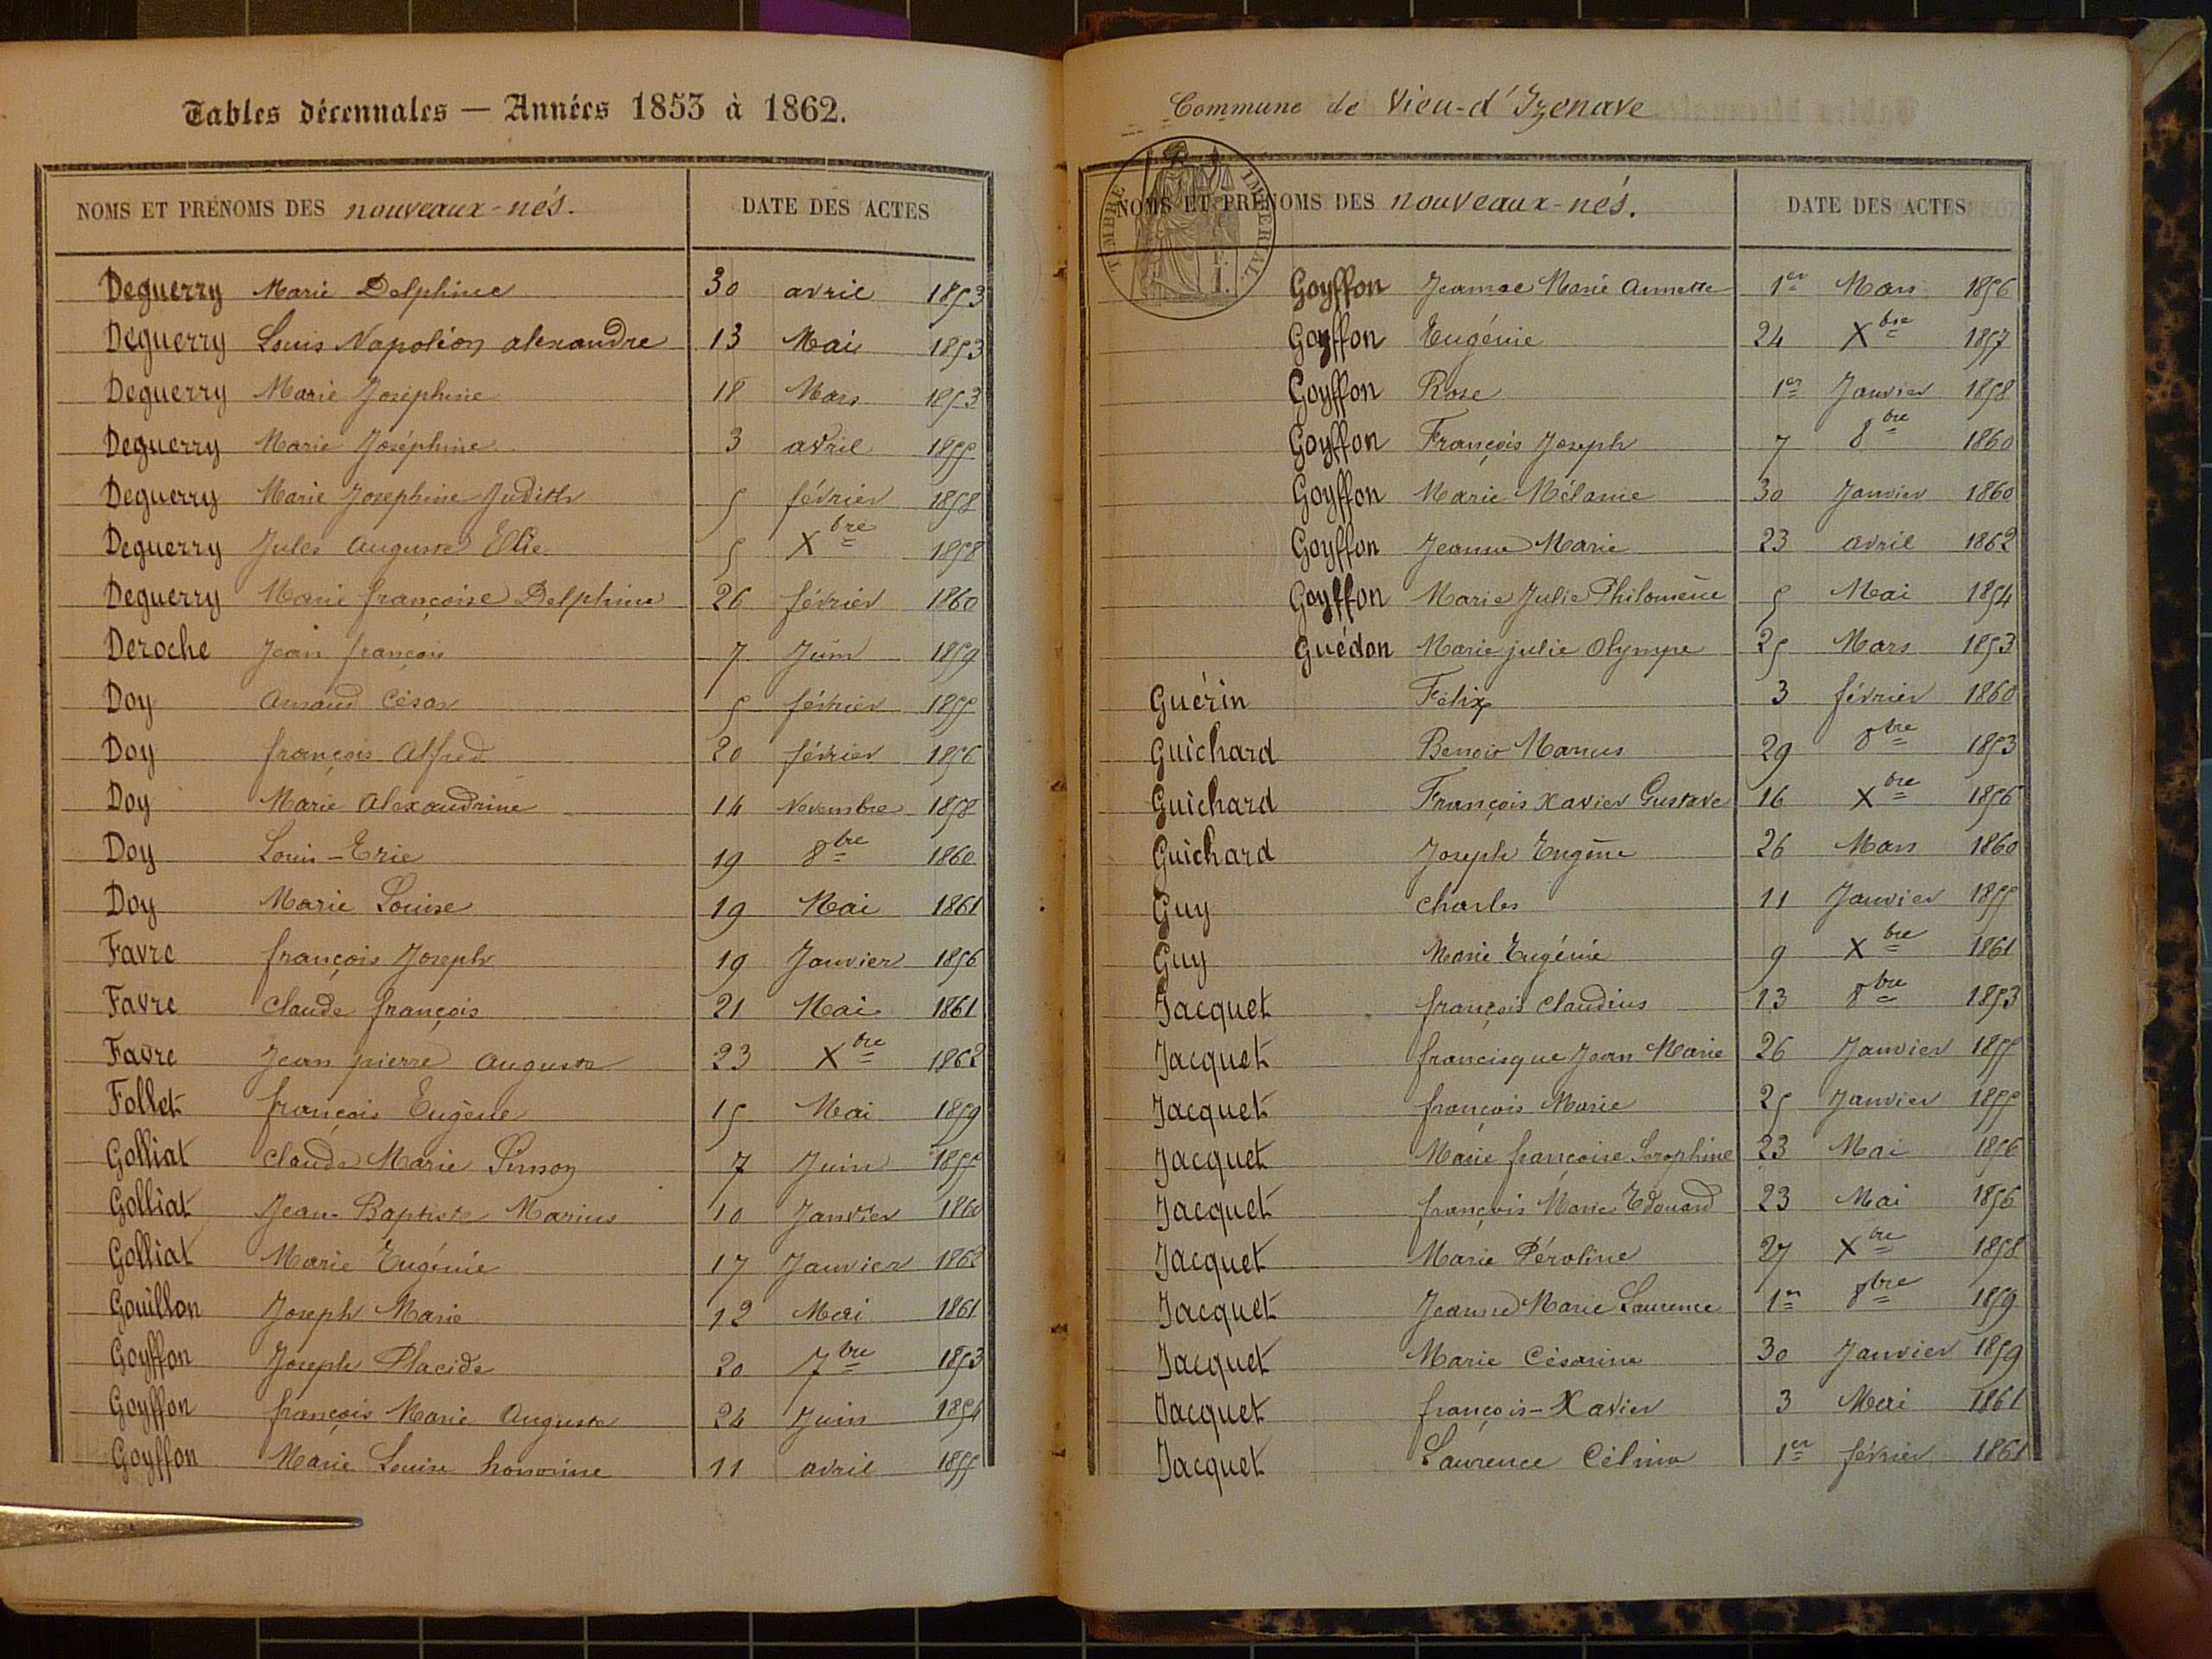 Tables décennales — Années 1853 à 1862.
NOMS ET PRÉNOMS DES nouveaux-nés. DATE DES ACTES
Deguerry Marie Delphine 30 avril 1853
Deguerry Louis Napoléon alexandre 13 Mai 1853
Deguerry Marie Joséphine 18 Mars 1853
Deguerry Marie Joséphine 3 avril 1855
Deguerry Marie Josephine Judith 5 février 1858
Deguerry Jules auguste Elie 5 Xbre 1858
Deguerry Marie françoise Delphine 26 février 1860
Deroche Jean françois 7 Juin 1859
Doy Amand César 5 février 1855
Doy françois Alfred 20 février 1856
Doy Marie Alexandrine 14 Novembre 1858
Doy Louis-Eric 19 8bre 1860
Doy Marie Louise 19 Mai 1861
Favre françois Joseph 19 Janvier 1856
Favre Claude françois 21 Mai 1861
Favre Jean pierre auguste 23 Xbre 1862
Follet françois Eugène 15 Mai 1859
Golliat Claude Marie 7 Juin 1855
Golliat Jean-Baptiste Marius 10 Janvier 1860
Golliat Marie Eugénie 17 Janvier 1862
Gouillon Joseph Marie 12 Mai 1861
Goyffon Joseph Placide 20 7bre 1853
Goyffon françois Marie Auguste 24 Juin 1854
Goyffon Marie Louise honorine 11 avril 1855
Commune de Vieu-d'Izenave
TIMBRE IMPÉRIAL
NOMS ET PRÉNOMS DES nouveaux-nés. DATE DES ACTES
Goyffon Jeanne Marie Annette 1er Mars 1856
Goyffon Eugénie 24 Xbre 1857
Goyffon Rose 1er Janvier 1858
Goyffon François Joseph 7 8bre 1860
Goyffon Marie Mélanie 30 Janvier 1860
Goyffon Jeanne Marie 23 avril 1862
Goyffon Marie Julie Philomène 5 Mai 1854
Guédon Marie julie Olympe 25 Mars 1853
Guérin Félix 3 février 1860
Guichard Benoit Marius 29 8bre 1853
Guichard François Xavier Gustave 16 Xbre 1856
Guichard Joseph Eugène 26 Mars 1860
Guy Charles 11 Janvier 1855
Guy Marie Eugénie 9 Xbre 1861
Jacquet françois Claudius 13 8bre 1853
Jacquet francisque Jean Marie 26 Janvier 1855
Jacquet françois Marie 25 Janvier 1855
Jacquet Marie françoise Séraphine 23 Mai 1856
Jacquet françois Marie Edouard 23 Mai 1856
Jacquet Marie Péroline 27 Xbre 1858
Jacquet Jeanne Marie Laurence 1er 8bre 1859
Jacquet Marie Césarine 30 Janvier 1859
Jacquet françois-Xavier 3 Mai 1861
Jacquet Laurence Célina 1er février 1861